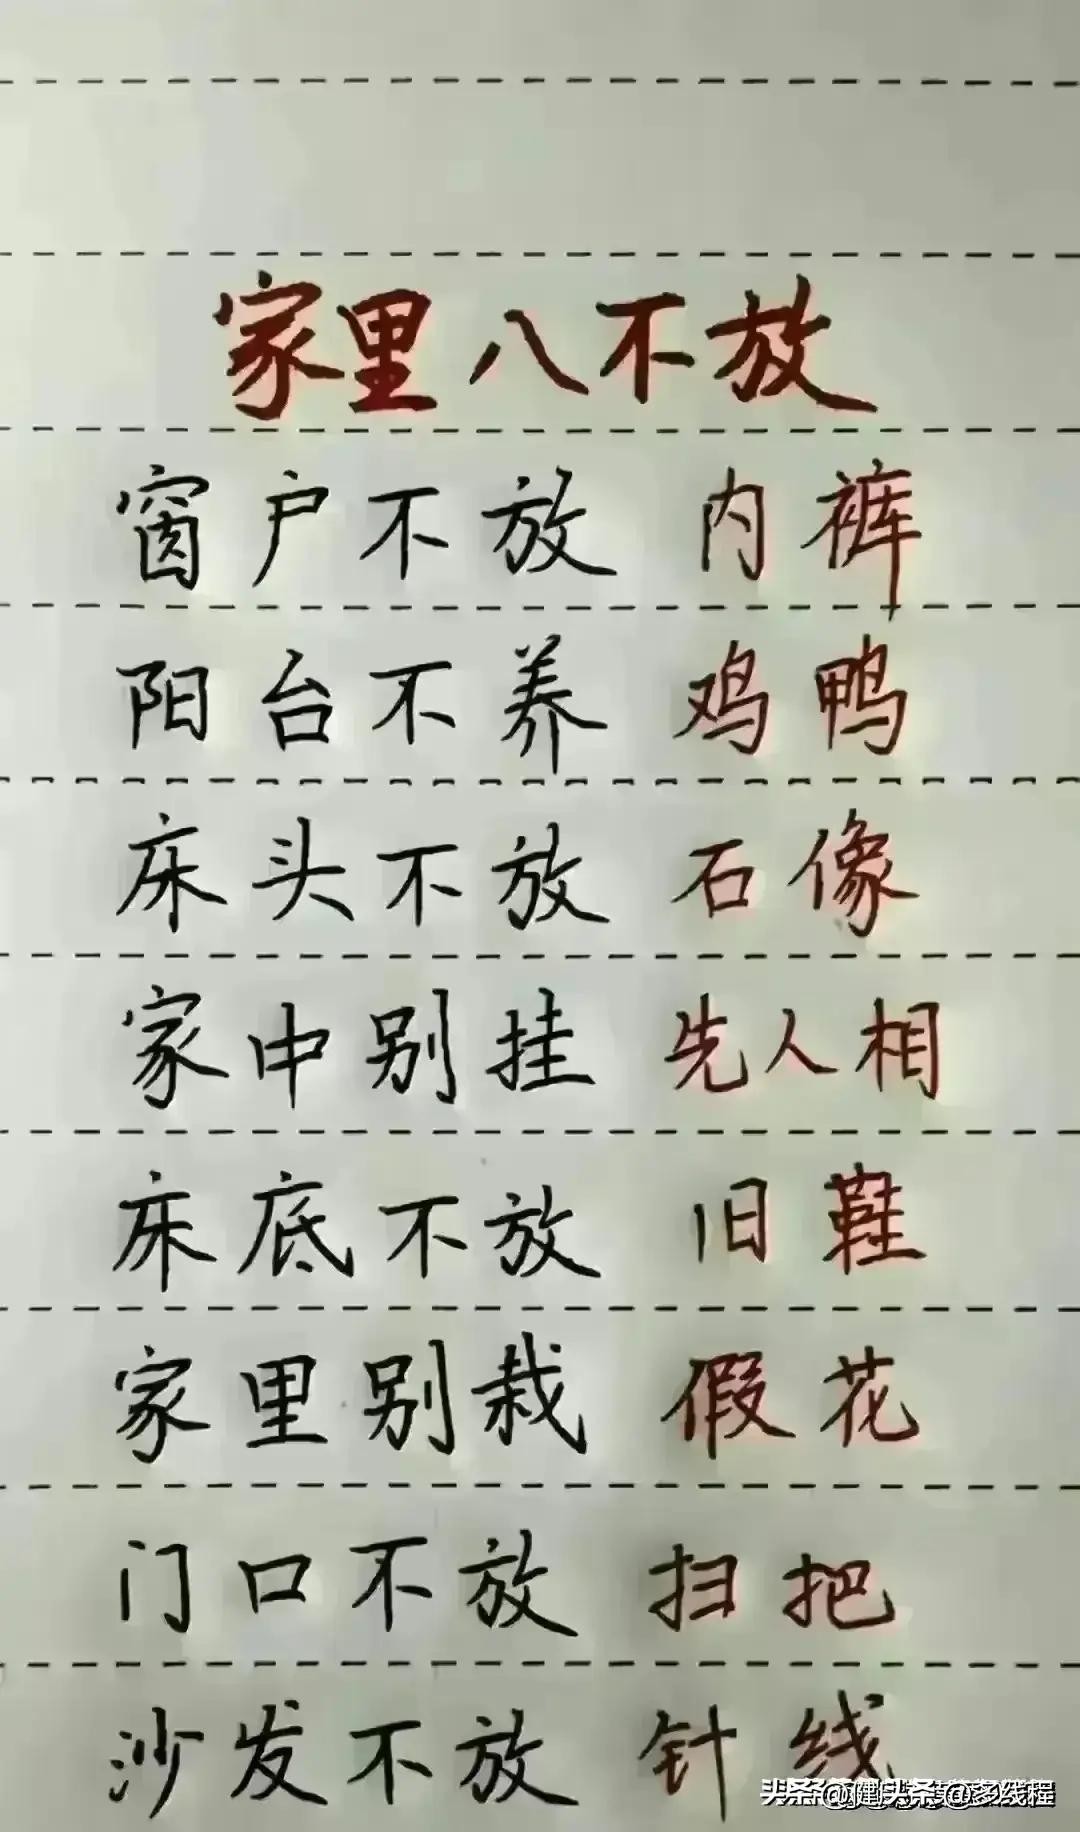 家里八不放
窗户不放 内裤
阳台不养 鸡鸭
床头不放 石像
家中别挂 先人相
床底不放 旧鞋
家里别栽 假花
门口不放 扫把
沙发不放 针线
头条@多线程